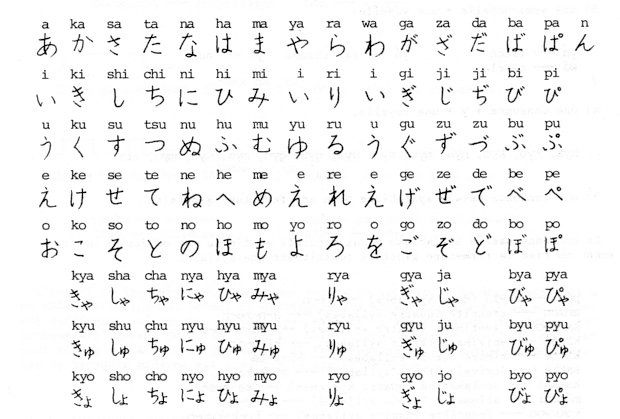 a ka sa ta na ha ma ya ra wa ga za da ba pa n
あ か さ た な は ま や ら わ が ざ だ ば ぱ ん
i ki shi chi ni hi mi i ri i gi ji ji bi pi
い き し ち に ひ み い り い ぎ じ ぢ び ぴ
u ku su tsu nu hu mu yu ru u gu zu zu bu pu
う く す つ ぬ ふ む ゆ る う ぐ ず づ ぶ ぷ
e ke se te ne he me e re e ge ze de be pe
え け せ て ね へ め え れ え げ ぜ で べ ぺ
o ko so to no ho mo yo ro o go zo do bo po
お こ そ と の ほ も よ ろ を ご ぞ ど ぼ ぽ
kya sha cha nya hya mya rya gya ja bya pya
きゃ しゃ ちゃ にゃ ひゃ みゃ りゃ ぎゃ じゃ びゃ ぴゃ
kyu shu chu nyu hyu myu ryu gyu ju byu pyu
きゅ しゅ ちゅ にゅ ひゅ みゅ りゅ ぎゅ じゅ びゅ ぴゅ
kyo sho cho nyo hyo myo ryo gyo jo byo pyo
きょ しょ ちょ にょ ひょ みょ りょ ぎょ じょ びょ ぴょ